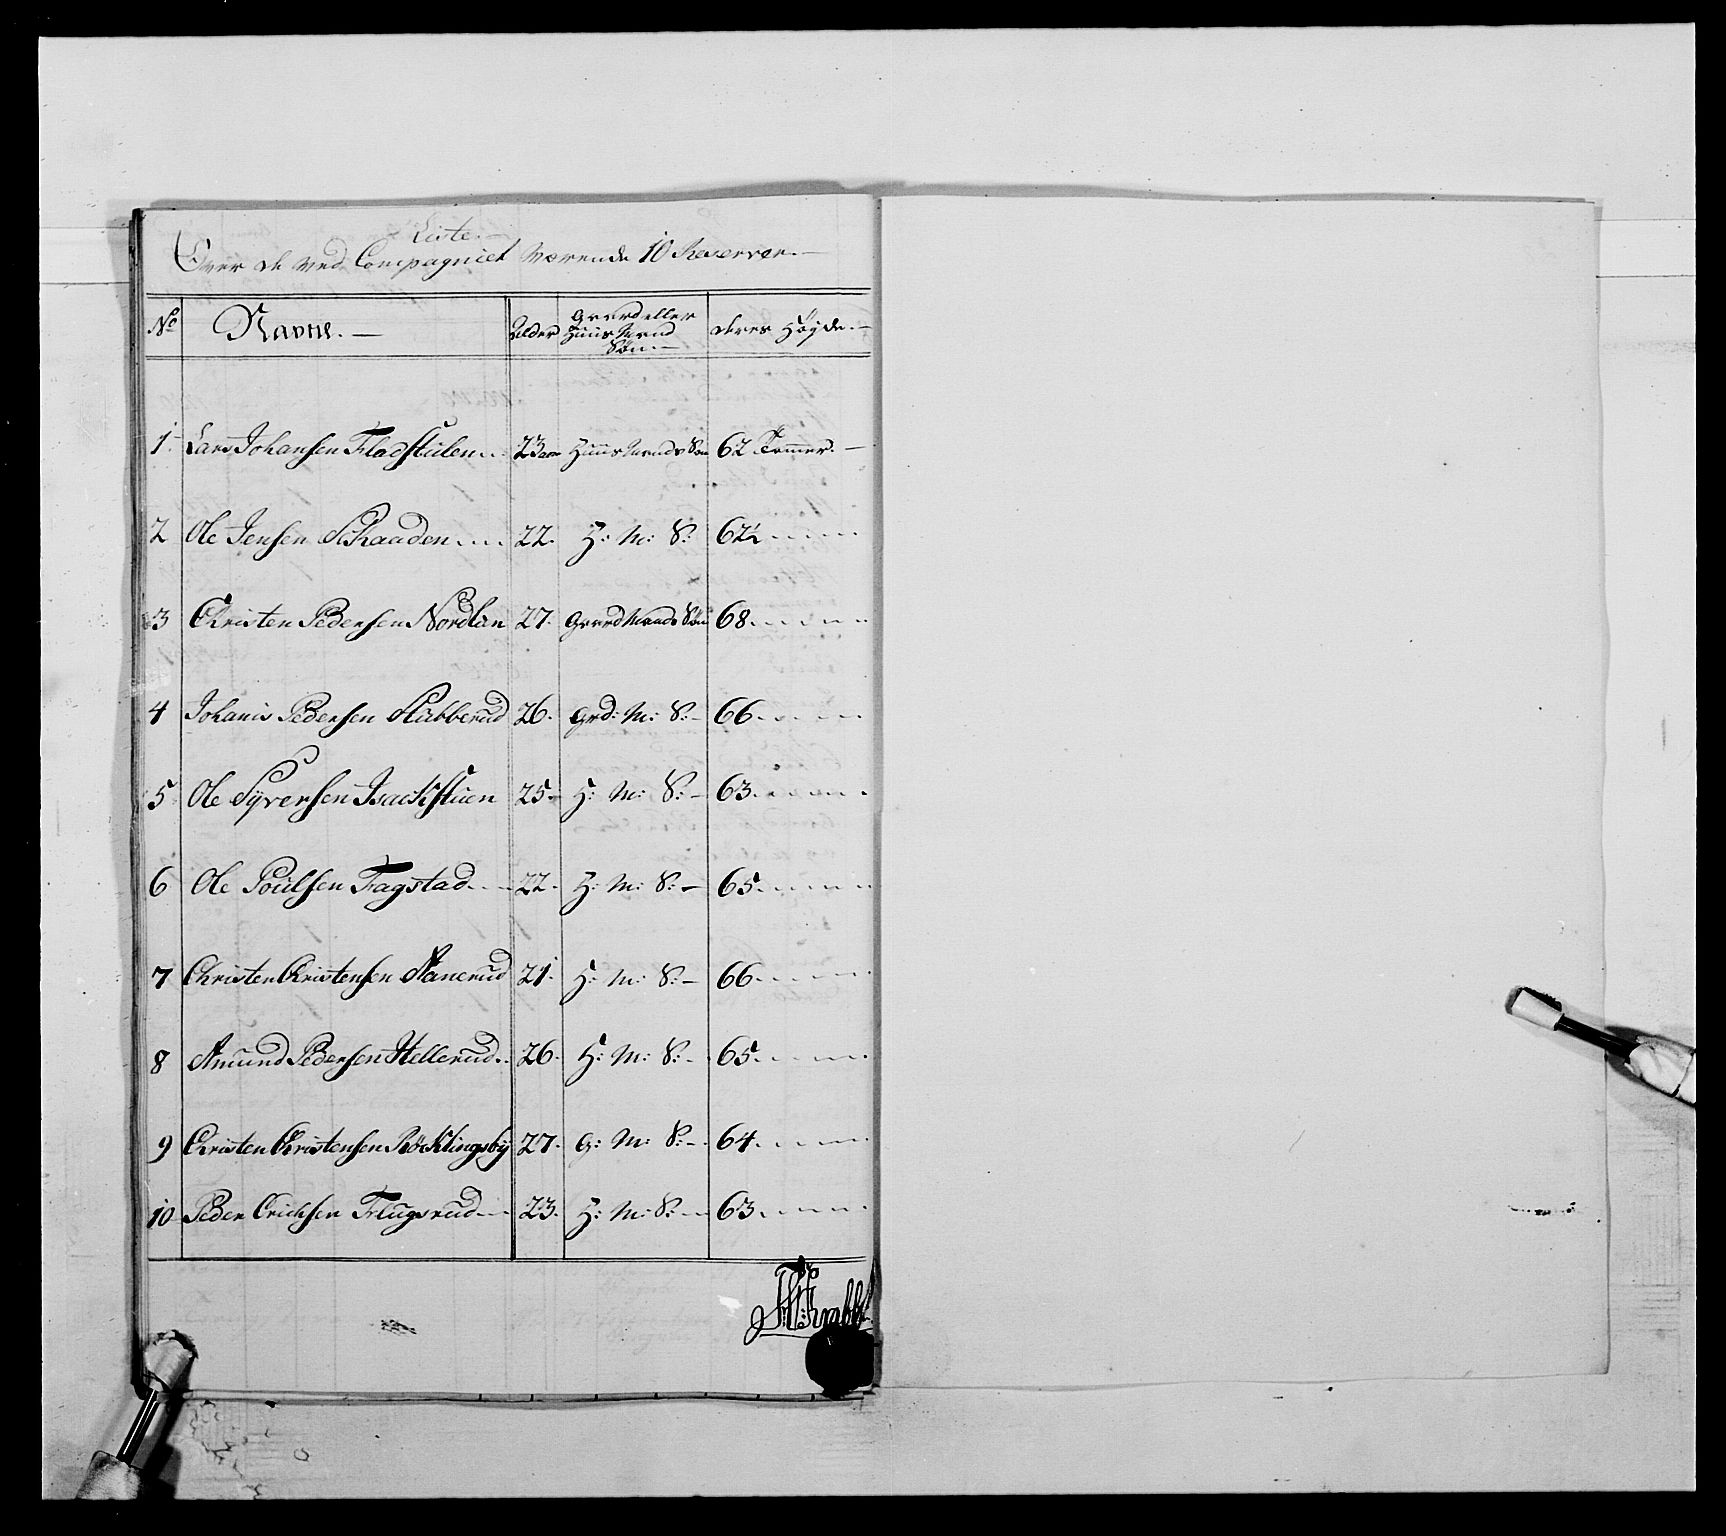 Liste.
Over de ved Compagniet værende 10 Reserver.
No Navne. Alder Gaard eller Huus Mand Søn deres Høyde.
1 Lars Johansen Fladstulen 23 aar Huus Mands Søn 62 Tommer.
2 Ole Jensen Skaaden 22. H: M: S: 62½
3 Christen Pedersen Nordlin 27. Gaard Mands Søn 68.
4 Johanis Pedersen Stubberud 26. Grd: M: S: 66.
5 Ole Syversen Isackstuen 25 H: M: S: 63.
6 Ole Poulsen Fragstad 22. H: M: S: 65.
7 Christen Christensen Stanerud 21. H: M: S: 66.
8 Amund Pedersen Hellerud 26. H: M: S: 65.
9 Christen Christensen Röcklingsby 27. G: M: S: 64.
10 Peder Erichsen Flugsrud 23. H: M: S: 63.